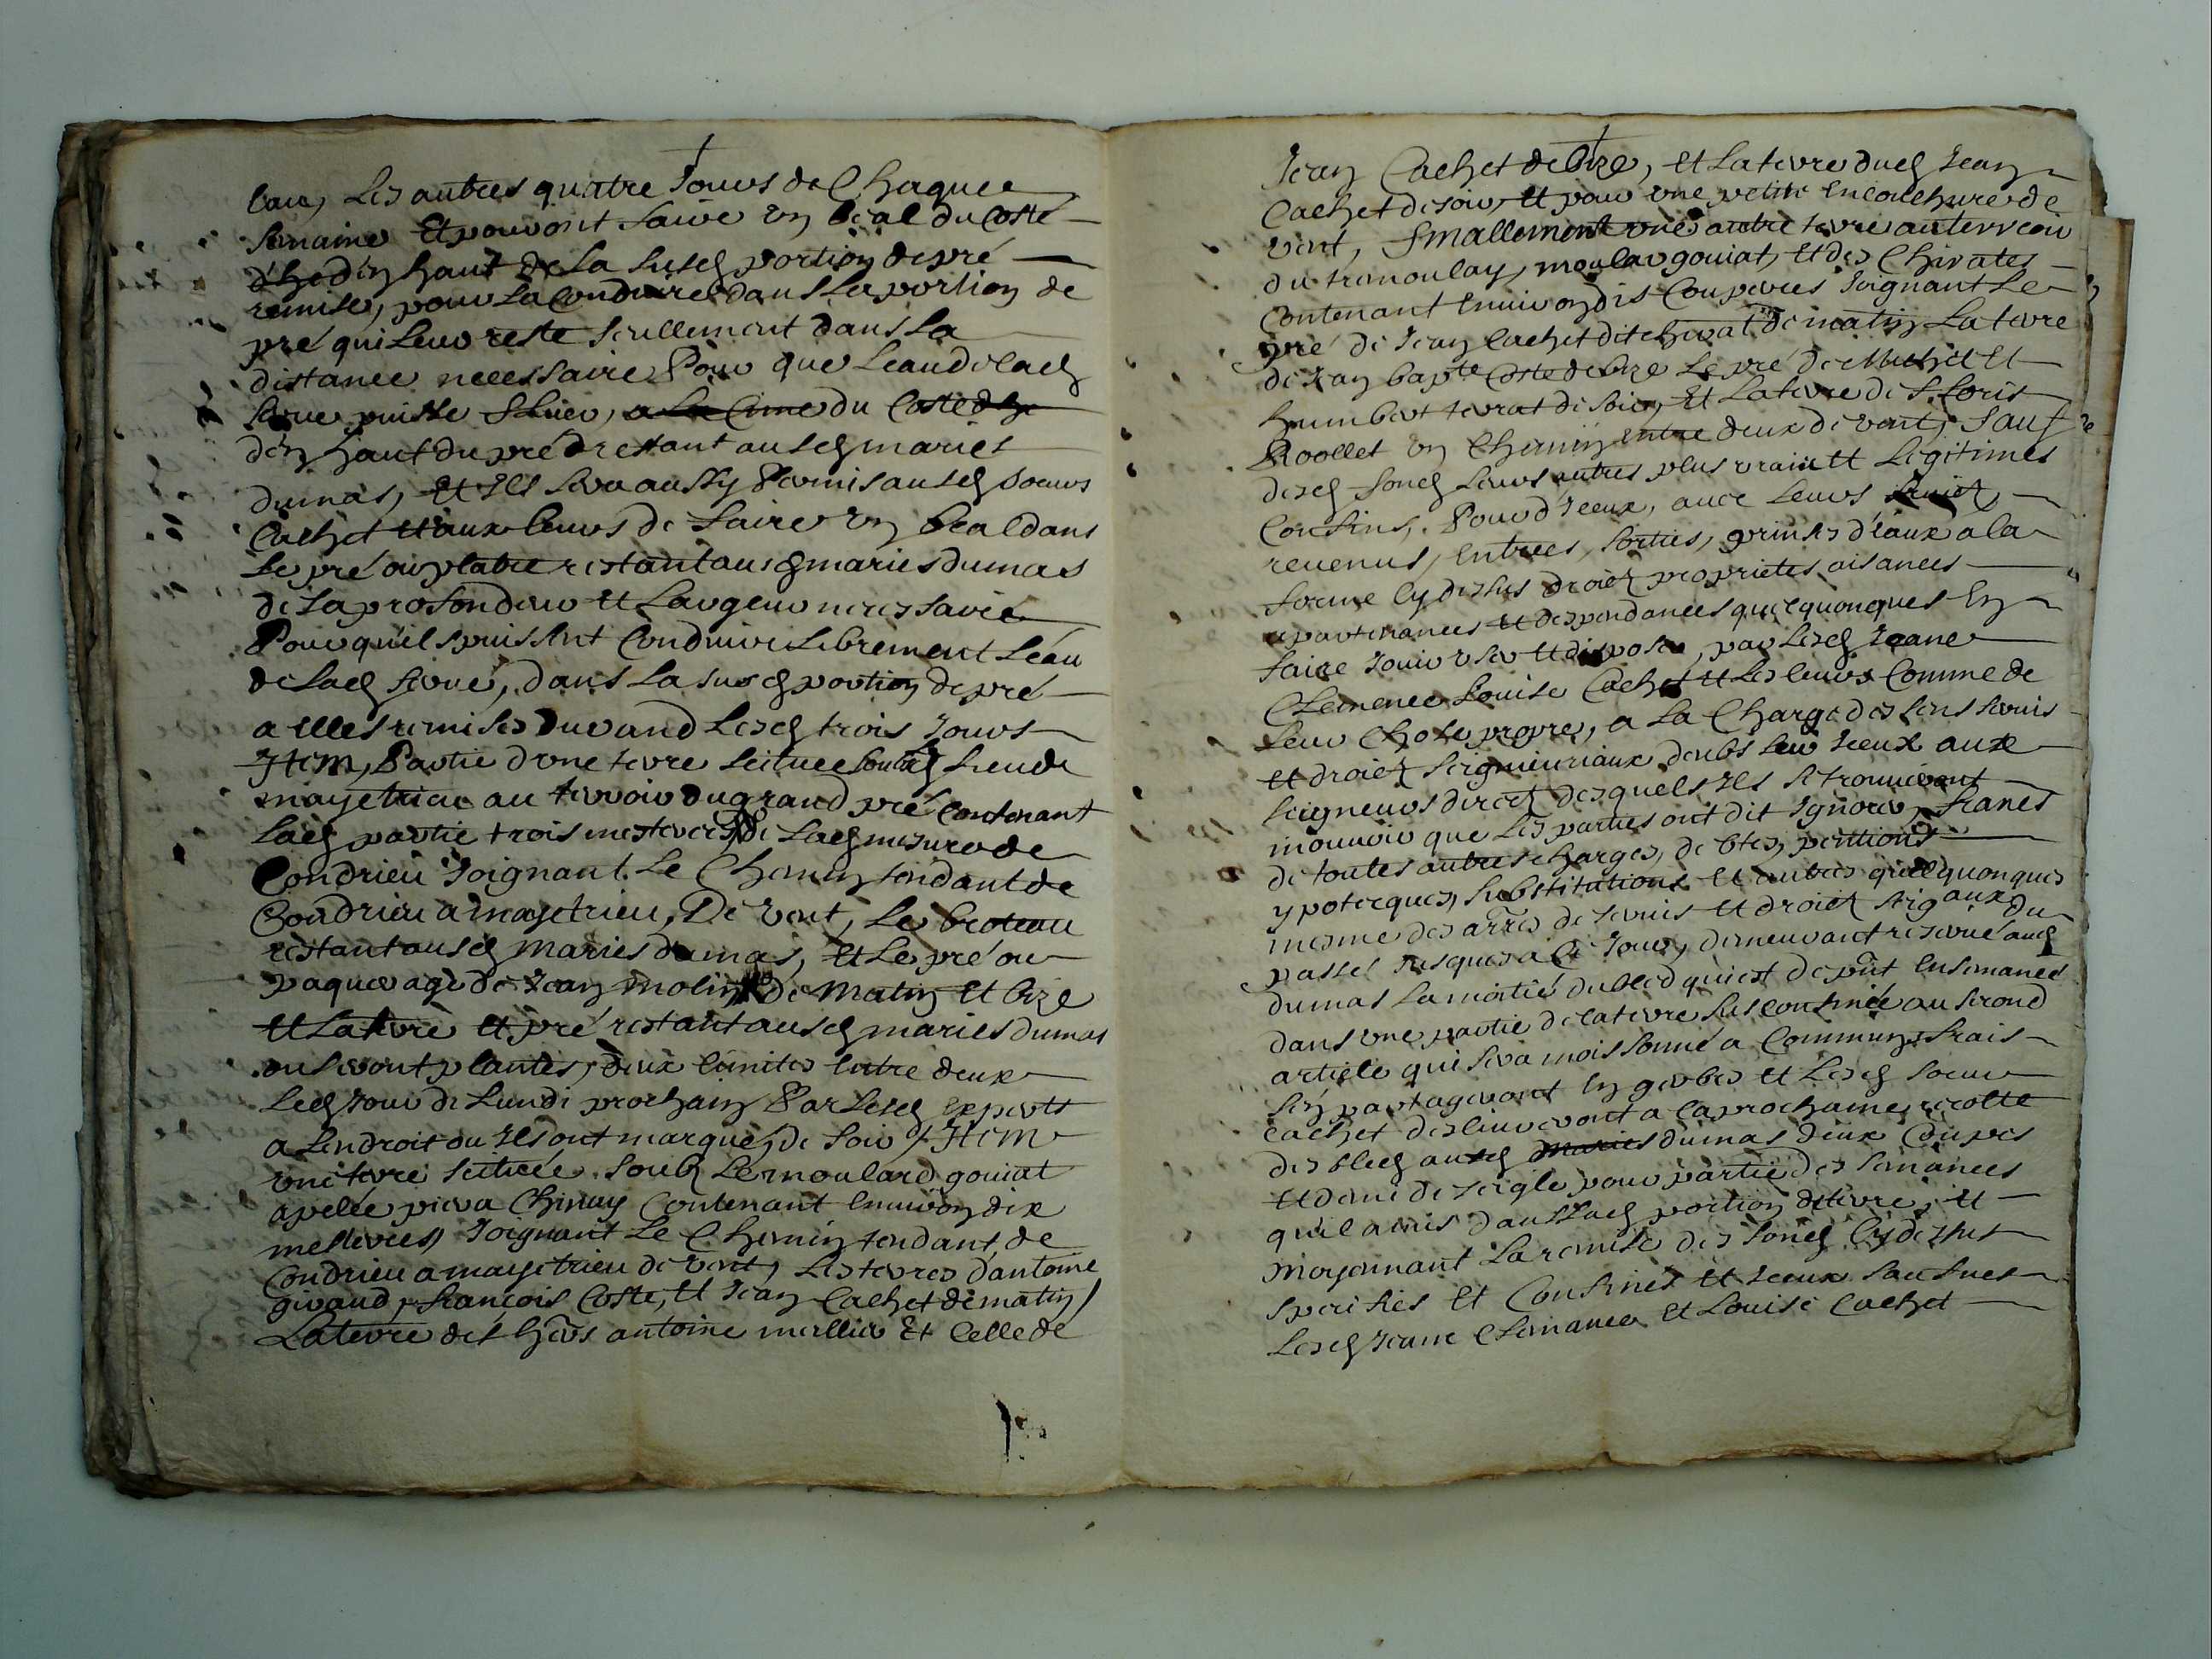 l'eau, Les autres quatre Jours de Chaque
semaine Et pouront faire un béal du Costé
d'hedén haut de La susd portion de pré
remise, pour La Conduire dans La portion de
pré qui Leur reste seullement dans La
distance necessaire Pour que Leau de lad
serue puisse fluer, a La Cime du Costé de
dén haut du pré restant ausd mariés
dumas, Et Ils sera aussy Permis ausd soeurs
Cachet et aux leurs de faire un béal dans
Le pré ou platre restant ausd mariés dumas
de La profondeur et Largeur necessaire
Pour qu'ils puissent Conduire Librement Léau
de Lad serué, dans La susd portion de pré
a Elles remises Durand Lesd trois Jours
Item, Partie d'une terre scituee soubz lieu de
mayetrieu au terroir du grand pré Contenant
Lad partie trois mesterées de Lad mesure de
Condrieu Joignant Le Chemin tendant de
Condrieu a mayetrieu, De Vent, Le broteau
restant ausd mariés dumas, et Le pré ou
paquerage de Jean molin de Matin Et bize
et La terre et pré restant ausd mariés dumas
ou seront plantés, deux Limites Entre deux
Led Jour de Lundi prochain Par Lesd Experts
a Lendroit ou Ils ont marqué, de soir / Item
une terre scituée soubz Le moulard gouiat
apelée piera Chinay Contenant Enuiron dix
mesterees Joignant Le Chemin tendant de
Condrieu a mayetrieu de Vent, Les terres d'antoine
giraud, françois Coste, et Jean Cachet de matin
La terre des hers antoine mellier Et Celle de
Jean Cachet de bize, et La terre dud Jean
Cachet de soir, et pour une petite Encochure de
vent, finallement une autre terre au terroir
du tremoulay, moular gouiat, et des Chirates
Contenant Enuiron dis Couperées Joignant Le
pré de Jean Cachet dit chirat de matin La terre
de Jean bapte Coste de bize Le pré de Michel Et
humbert terrat de soir, Et La terre de S. foris
Roollet un Chemin entre deux de vent, sauf
desd fondz Leurs autres plus vrais et Legitimes
Confins, Pour d'Iceux, auec Leurs fruictz,
reuenus, Entrées, sorties, prinses d'eaux a la
forme cy dessus droictz proprietes aisances
apartenances et despendances quelquonques En
faire Jouir User et disposer, par Lesd Jeane
Clemence Louise Cachet et Les leurs Comme de
Leur Chose propre, a La Charge des sens seruis
et droictz seigneuriaux deubs sur Iceux aux
seigneurs directz desquels Ils se trouueront
mouuoir que Les parties ont dit Ignorer, francs
de toutes autres charges, debtes, pentions
ypotecques, substitutions et autres quelquonques
mesme des arres de seruis et droictz seigaux du
passé Jusques a Ce Jour, demeurant reserué aud
dumas La moitié du bled qui est de pnt Ensemancé
dans une partie de la terre sus confinée au second
article qui sera moissonné a Communs frais
sén partageront En gerbes et Lesd soeurs
Cachet deliureront a la prochaine recolte
des bledz ausd mariés dumas deux Coupes
et demi de seigle pour partie des semances
qu'il a mis dans Lad portion de terre, et
moyennant La remise des fondz Cy dessus
speciffiés Et Confinés et Iceux sauf ues
Lesd Jeanne Clemance Et Louise Cachet